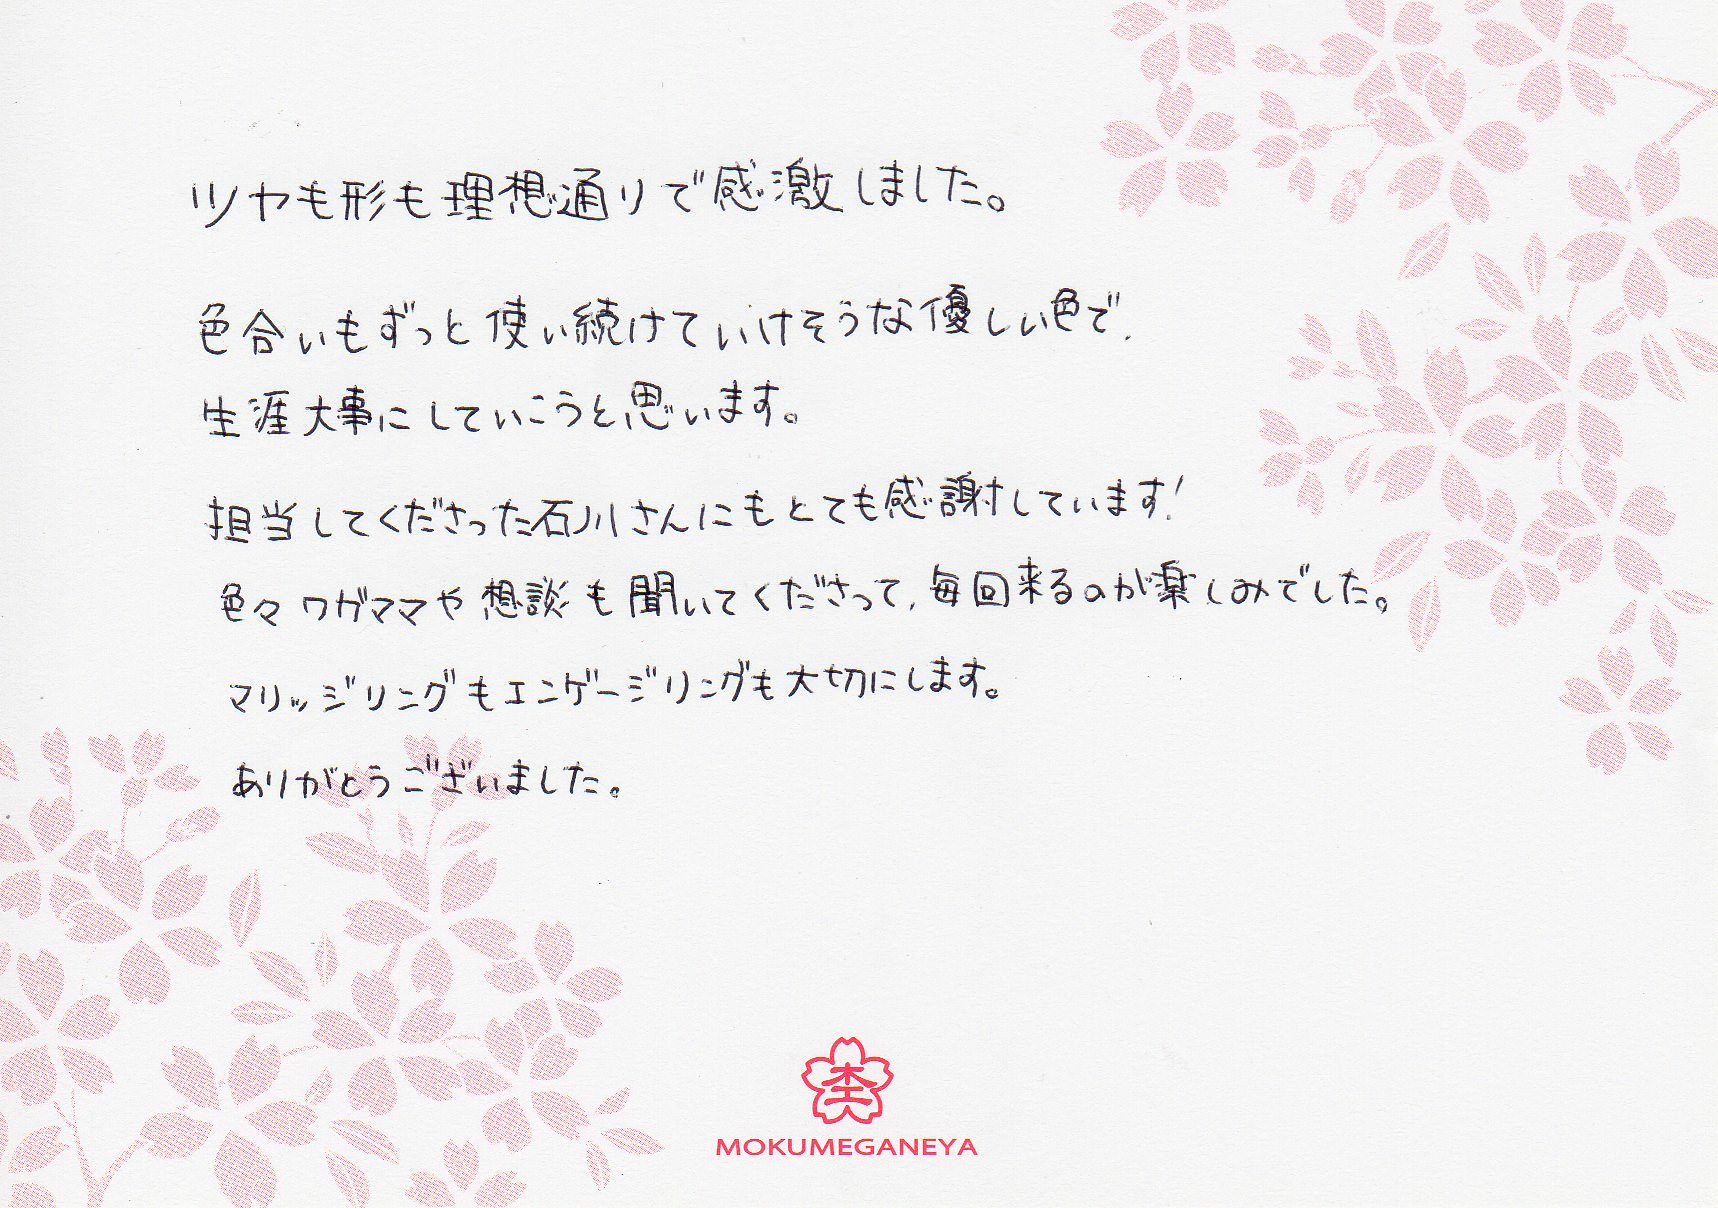 ツヤも形も理想通りで感激しました。
色合いもずっと使い続けていけそうな優しい色で、
生涯大事にしていこうと思います。
担当してくださった石川さんにもとても感謝しています!
色々ワガママや想談も聞いてくださって、毎回来るのが楽しみでした。
マリッジリングもエンゲージリングも大切にします。
ありがとうございました。
杢
MOKUMEGANEYA